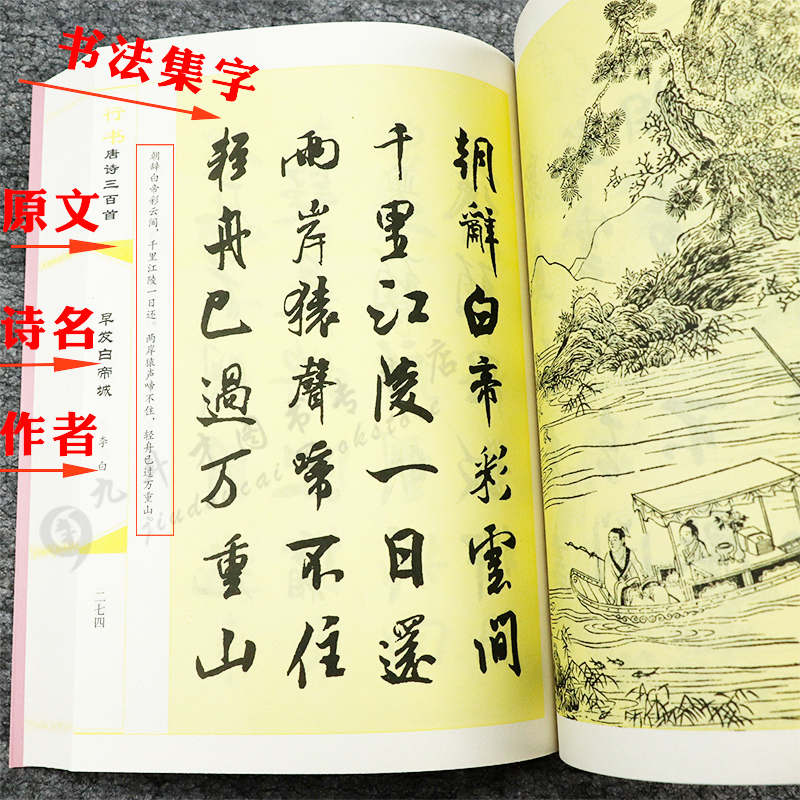 书法集字
原文
诗名
作者
朝辭白帝彩雲間
千里江陵一日還
兩岸猿聲啼不住
輕舟已過万重山
朝辞白帝彩云间，千里江陵一日还。两岸猿声啼不住，轻舟已过万重山。
行书
唐诗三百首
早发白帝城
李白
二七四